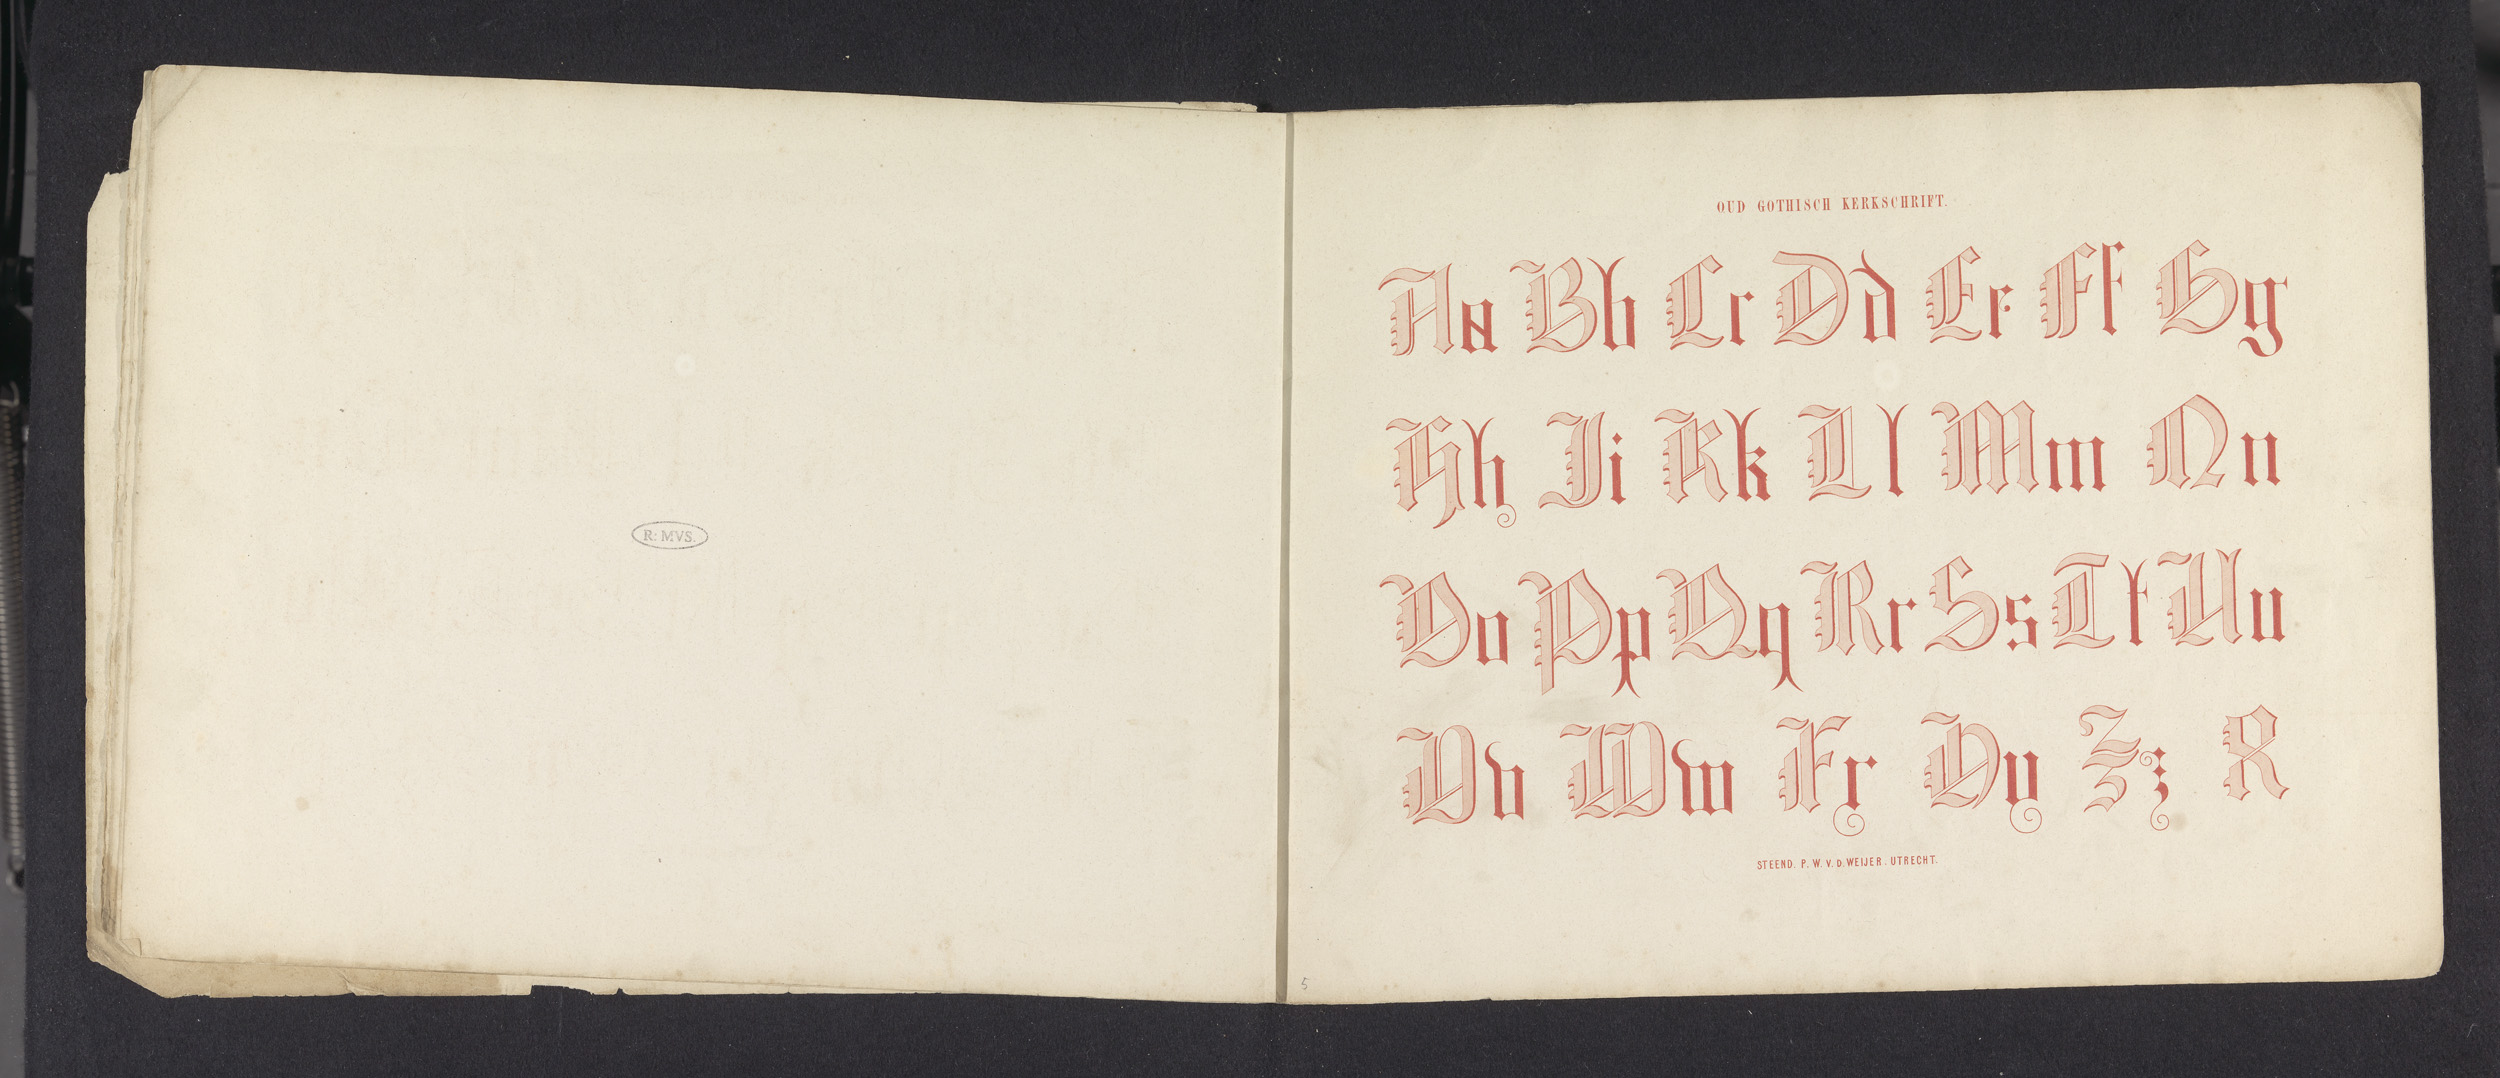 R: MVS.
OUD GOTHISCH KERKSCHRIFT.
Aa Bb Cc Dd Ee Ff Gg
Hh Ii Kk Ll Mm Nn
Oo Pp Qq Rr Ss Tt Uu
Vv Ww Xx Yy Zz X
STEEND. P. W. V. D. WEIJER. UTRECHT.
5